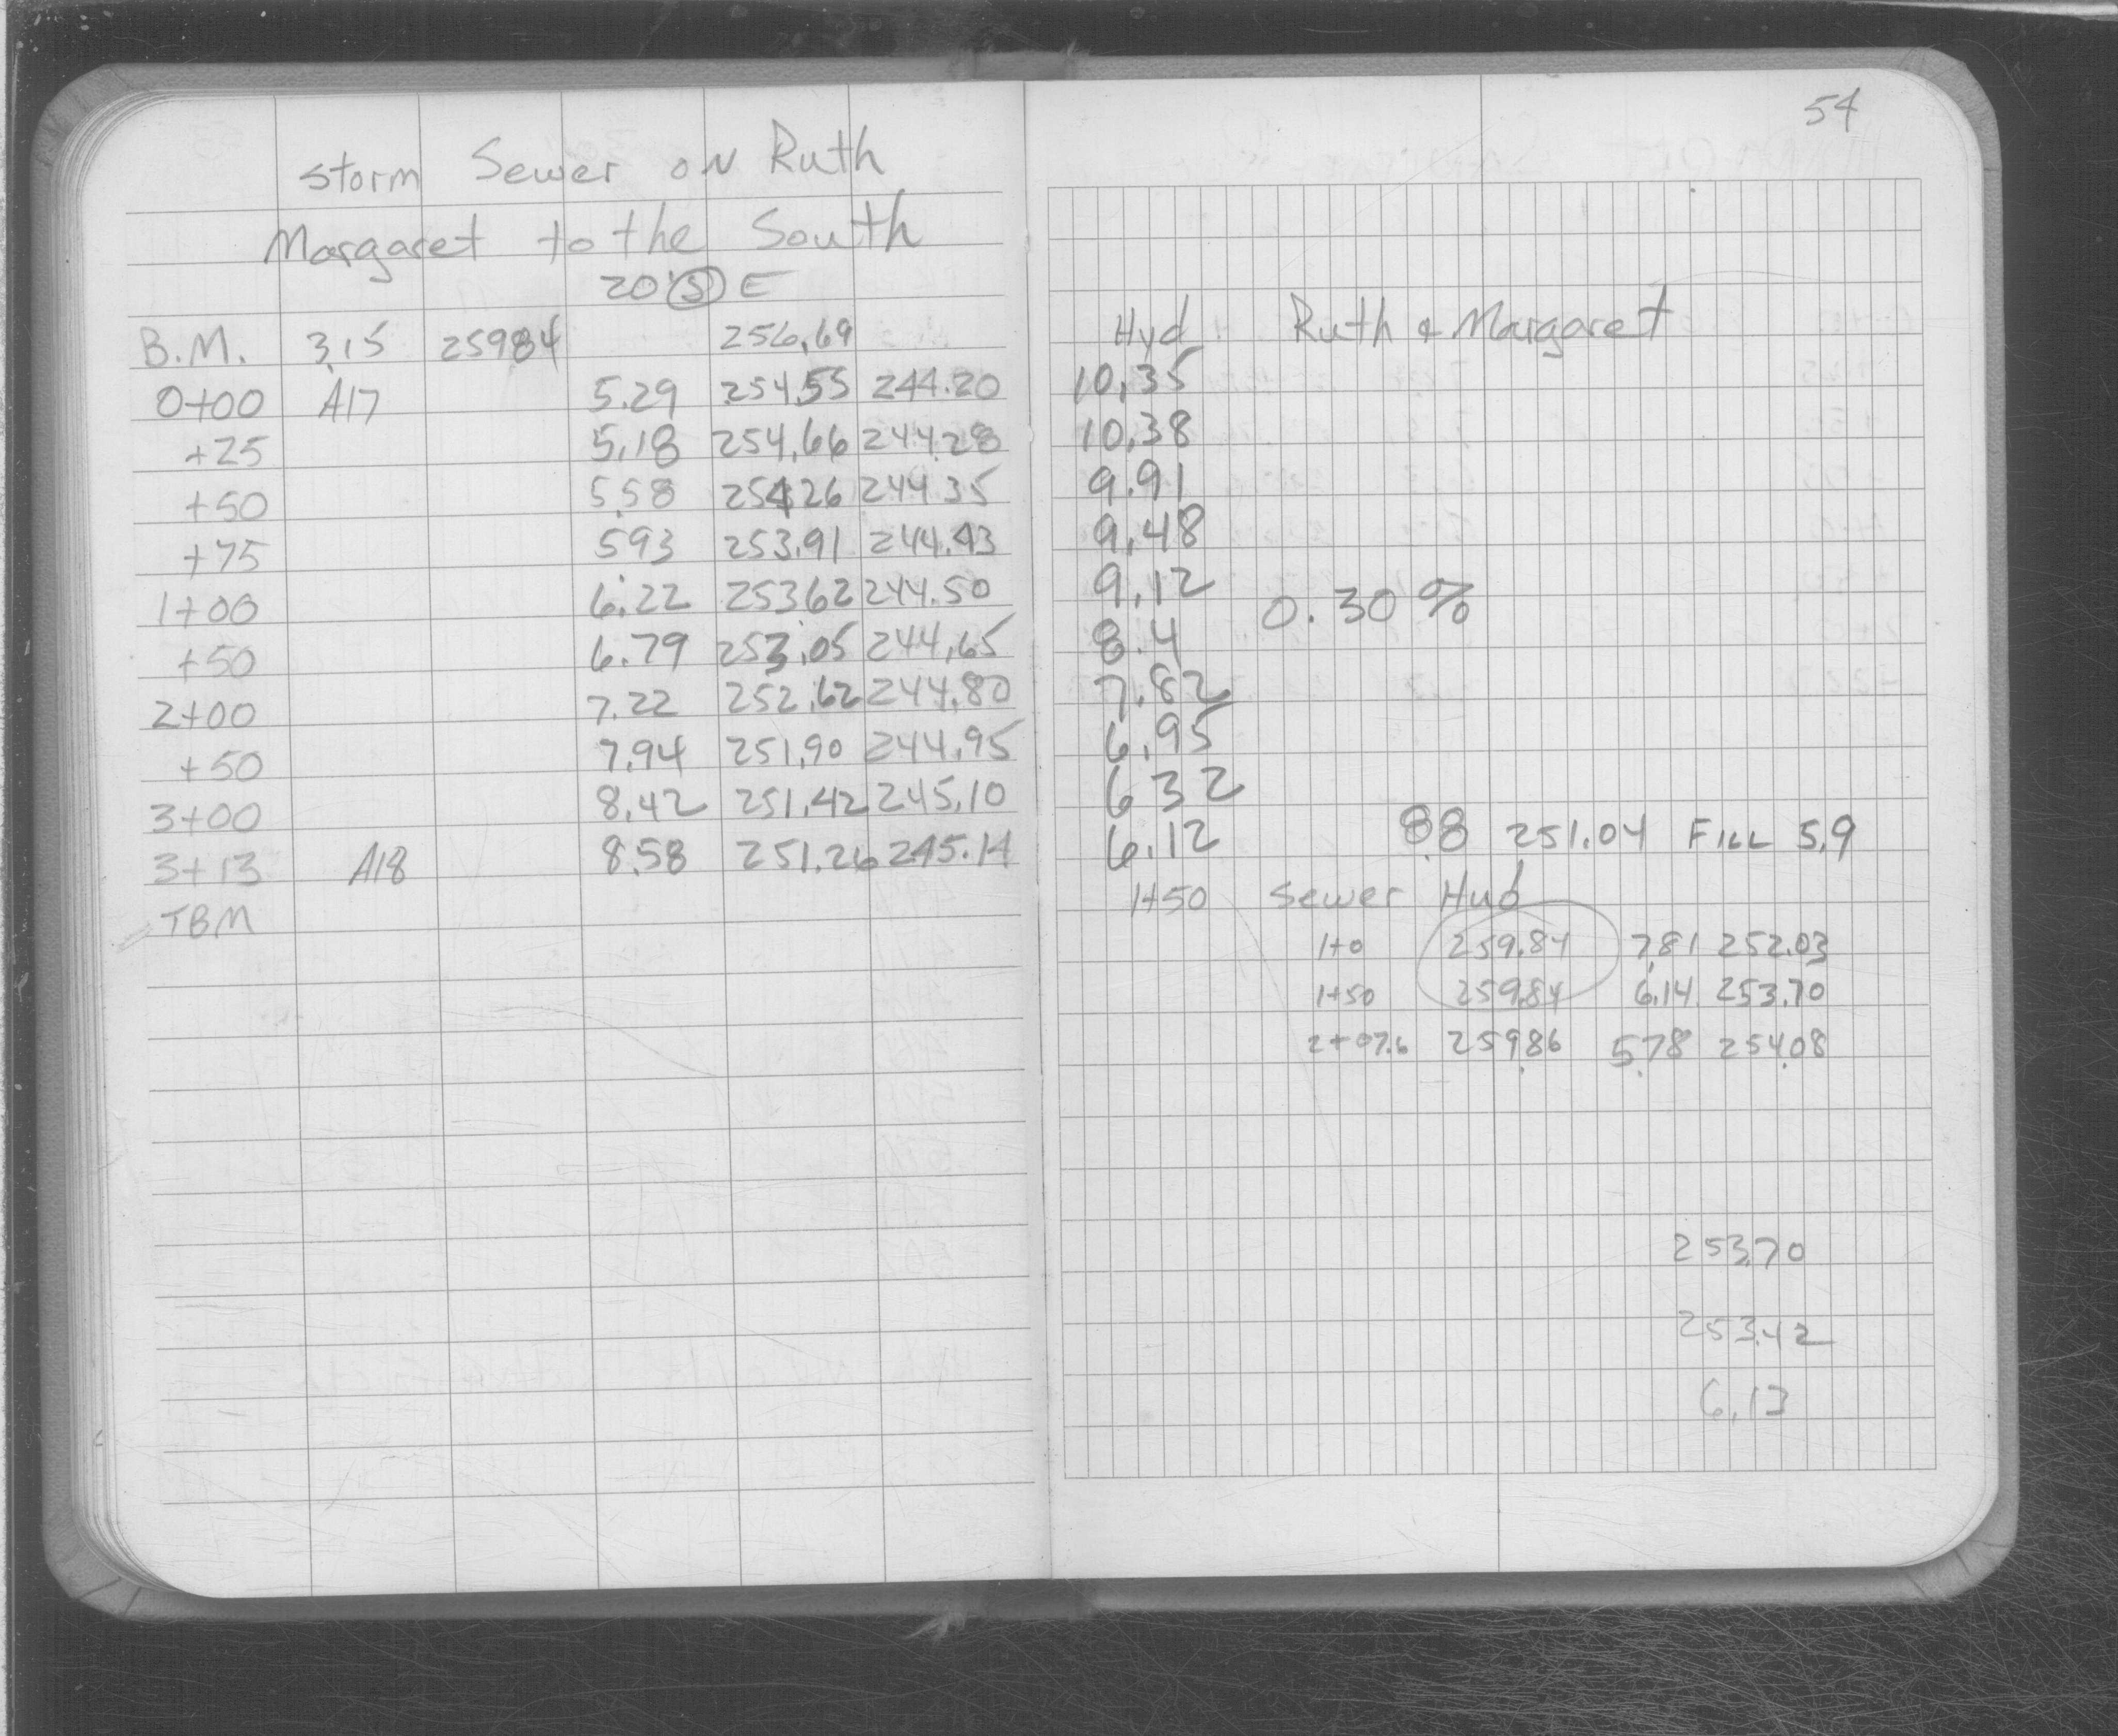 54
Storm Sewer on Ruth
Margaret to the South
20' S E
B.M. 3.15 259.84 256.69 Hyd Ruth & Margaret
0+00 A17 5.29 254.55 244.20 10.35
+25 5.18 254.66 244.28 10.38
+50 5.58 254.26 244.35 9.91
+75 5.93 253.91 244.43 9.48
1+00 6.22 253.62 244.50 9.12 0.30%
+50 6.79 253.05 244.65 8.4
2+00 7.22 252.62 244.80 7.82
+50 7.94 251.90 244.95 6.95
3+00 8.42 251.42 245.10 6.32
3+13 A18 8.58 251.26 245.14 6.12 8.8 251.04 FILL 5.9
TBM 1+50 Sewer Hud
1+0 259.84 7.81 252.03
1+50 259.84 6.14 253.70
2+07.6 259.86 5.78 254.08
253.70
253.42
6.13